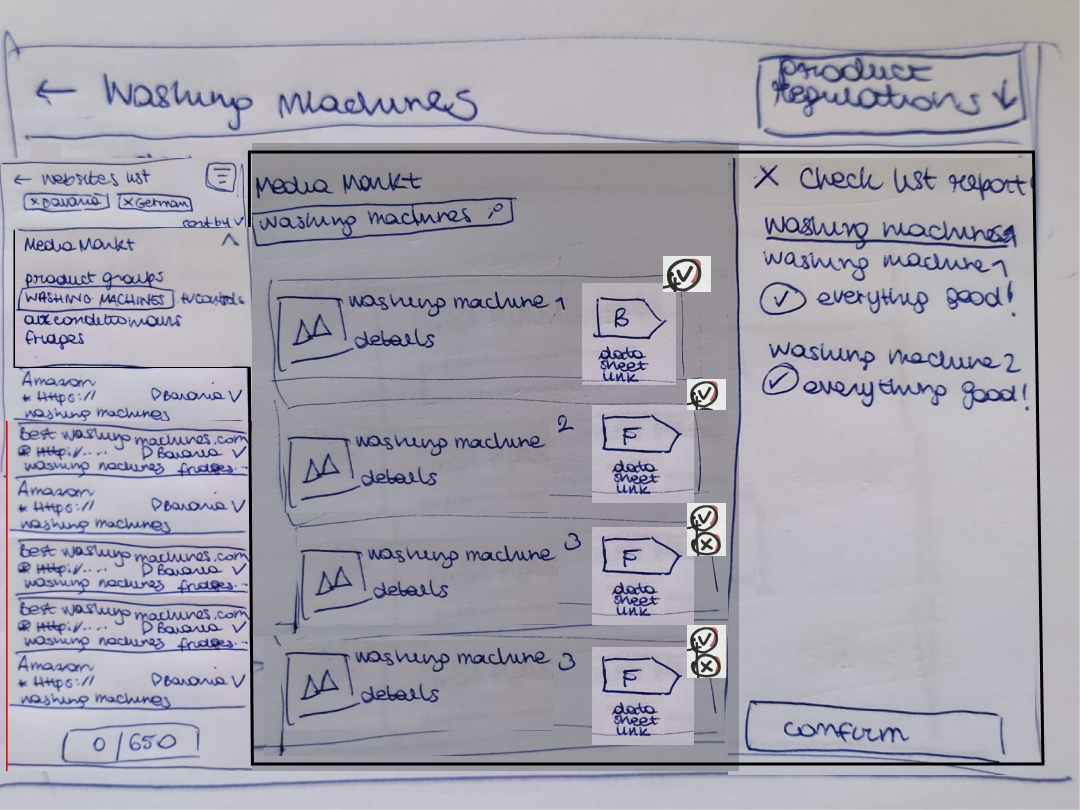 ← Washing Machines
product
regulations ↓
← websites list
x Bavaria x German
sort by
Media Markt
product groups
WASHING MACHINES tv controls
airconditioners
fridges
Amazon
* Https:// Bavaria
washing machines
Best washing machines.com
Http://.... Bavaria
washing machines fridges..
Amazon
* Https:// Bavaria
washing machines
Best washing machines.com
Http://.... Bavaria
washing machines fridges..
Best washing machines.com
Http://.... Bavaria
washing machines fridges..
Amazon
* Https:// Bavaria
washing machines
0/650
Media Markt
washing machines
washing machine 1
details
B
data
sheet
link
washing machine 2
details
F
data
sheet
link
washing machine 3
details
F
data
sheet
link
washing machine 3
details
F
data
sheet
link
X Check list report
washing machines
washing machine 1
everything good!
washing machine 2
everything good!
confirm